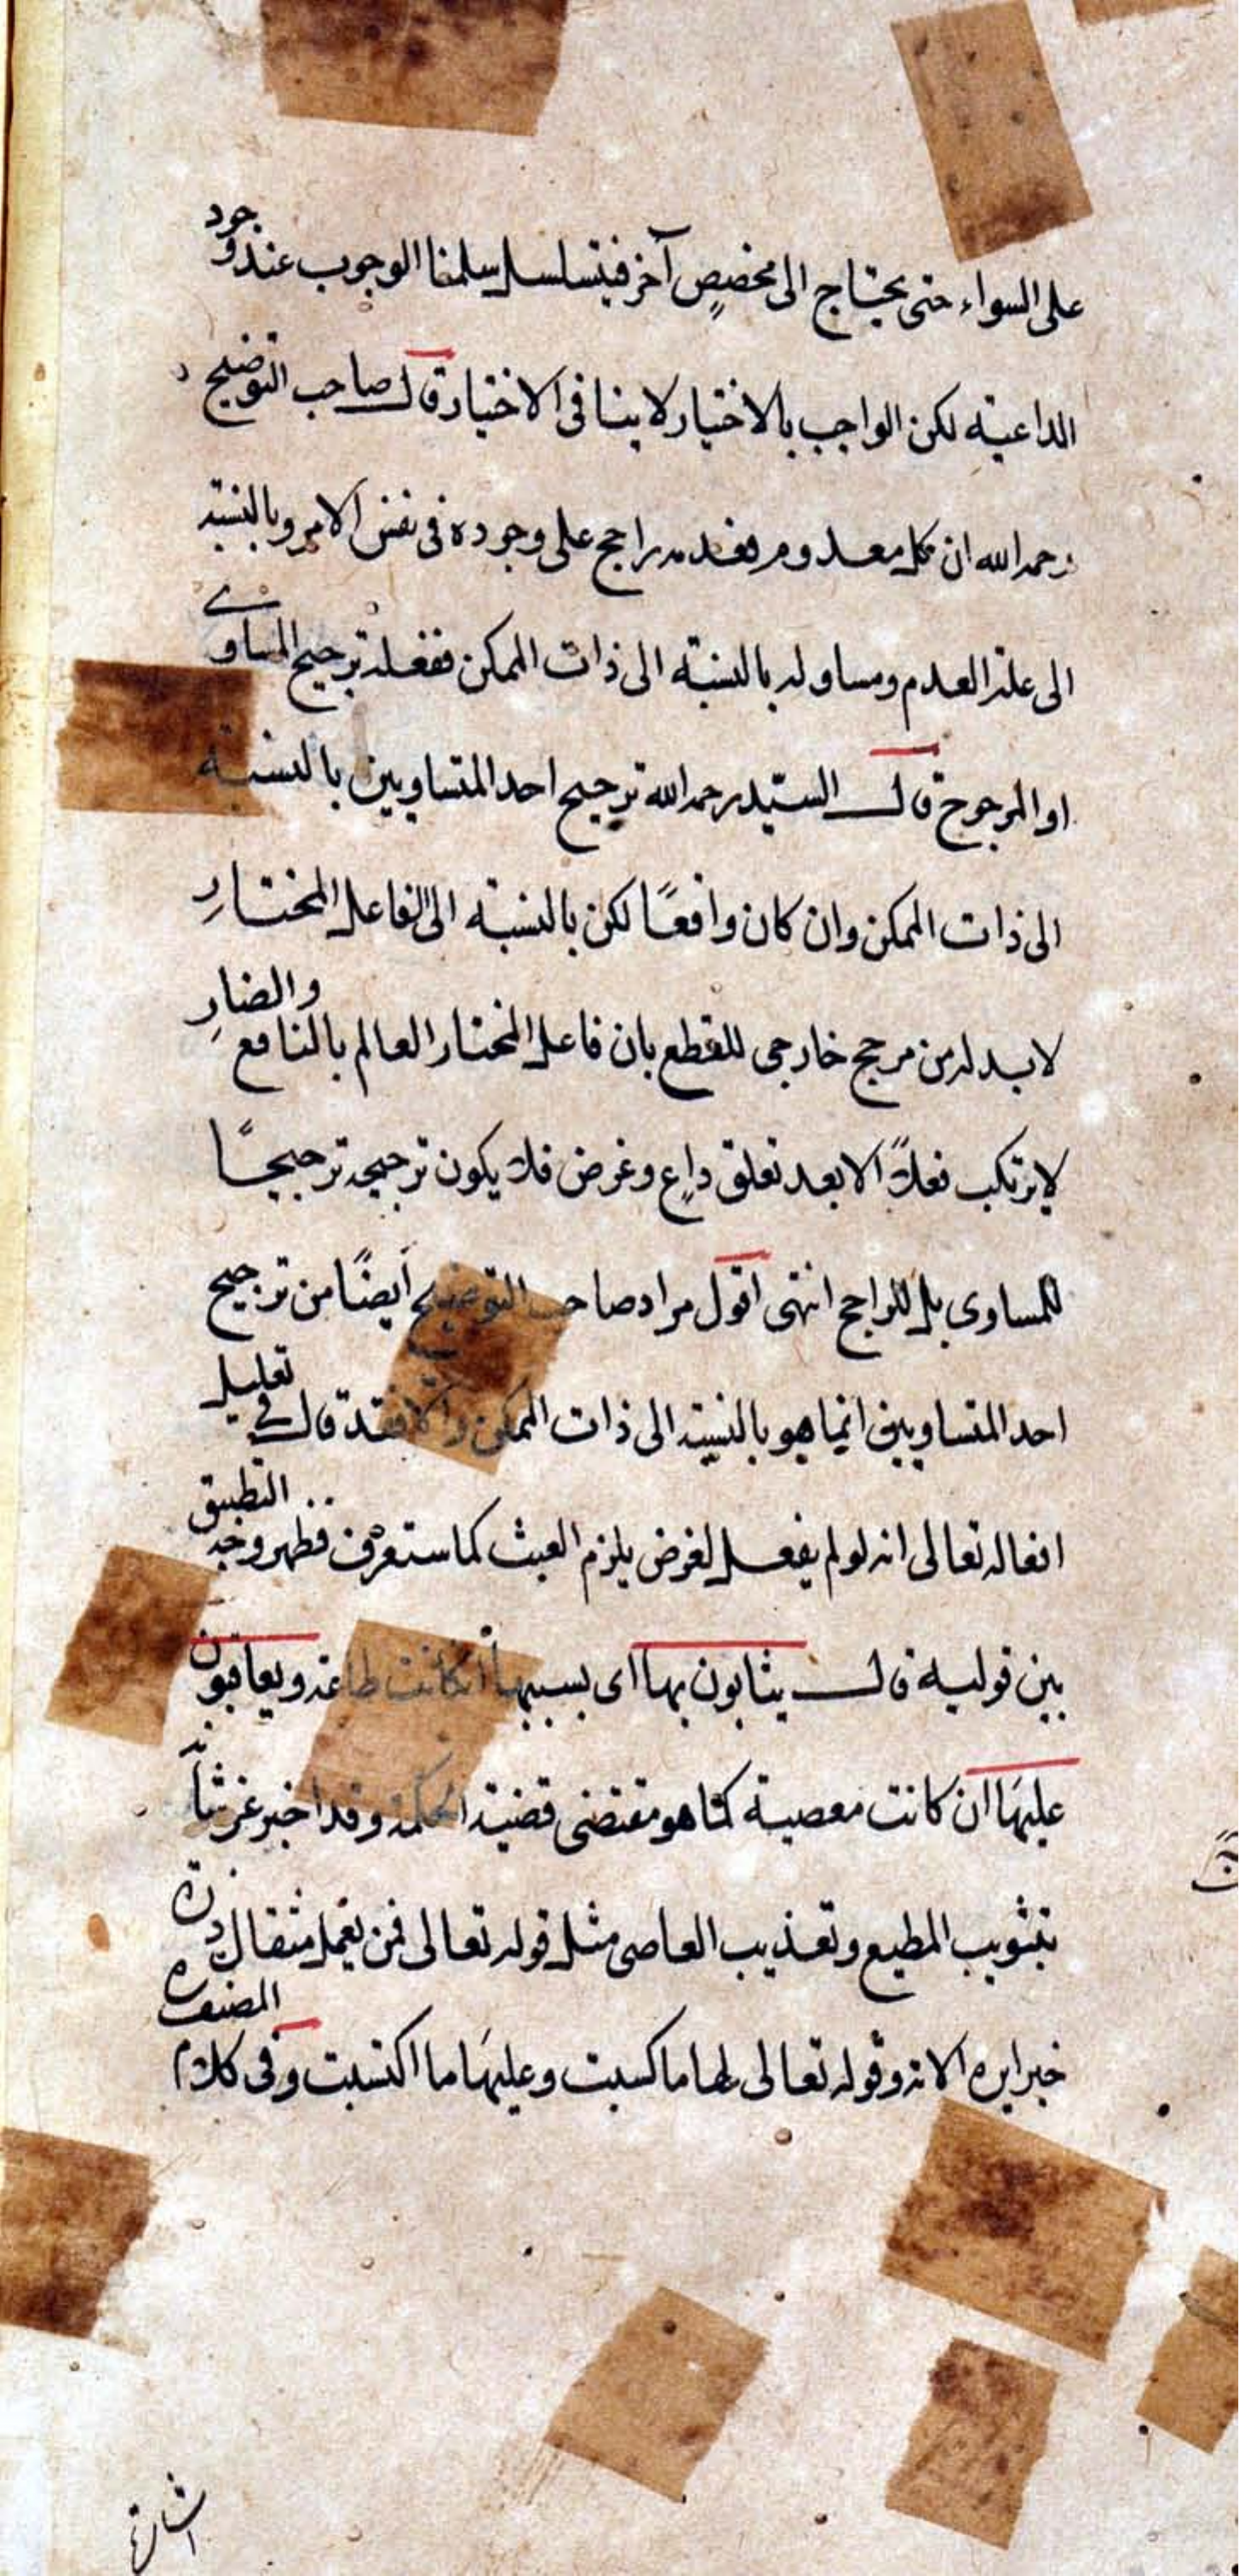 على السواء حتى يحتاج الى مخصص آخر فيتسلسل سلمنا الوجوب عند وجود
الداعية لكن الواجب بالاختيار لا ينافى الاختيار قال صاحب التوضيح
رحمه الله ان كل معدوم فعدمه راجح على وجوده فى نفس الامر وبالنسبة
الى علة العدم ومساو له بالنسبة الى ذات الممكن ففعله ترجيح المساوي
او المرجوح قال السيد رحمه الله ترجيح احد المتساويين بالنسبة
الى ذات الممكن وان كان واقعًا لكن بالنسبة الى الفاعل المختارِ
لا بد له من مرجح خارجى للقطع بان فاعل المختار العالم بالنافع والضارِ
لا يرتكب فعلاً الا بعد تعلق داعٍ وغرض فلا يكون ترجيحه ترجيحًا
للمساوى بل للراجح انتهى اقول مراد صاحب التوضيح أيضًا من ترجيح
احد المتساويين انما هو بالنسبة الى ذات الممكن والا فقد قال في تعليل
افعاله تعالى انه لو لم يفعل لغرض يلزم العبث كما ستعرف فظهر وجه التطبيق
بين قوليه قال يثابون بها اى بسببها ان كانت طاعة ويعاقبون
عليهَا ان كانت معصية كما هو مقتضى قضية الحكمة وقد اخبر عز شأنه
بتثويب المطيع وتعذيب العاصى مثل قوله تعالى فمن يعمل مثقال ذرة
خيرا يره الاية وقوله تعالى لها ما كسبت وعليهَا ما اكتسبت وفى كلام المصنف
اشارة